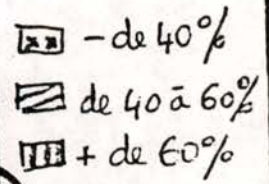 - de 40%
de 40 à 60%
+ de 60%